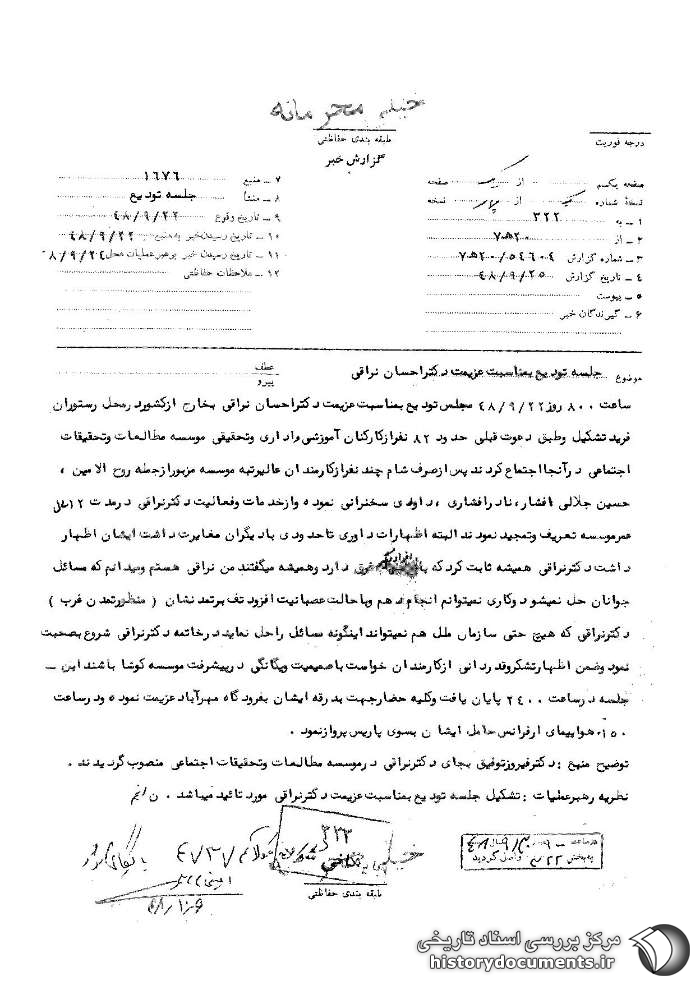 خیلی محرمانه
طبقه بندی حفاظتی
گزارش خبر
درجه فوریت
صفحه یکم از یک صفحه
نسخهٔ شماره از نسخه
۱ ـ به ۳۲۲
۲ ـ از ۷هـ۲۰
۳ ـ شماره گزارش ۷هـ۲۰/۵۴۶۰۴
۴ ـ تاریخ گزارش ۴۸/۹/۲۵
۵ ـ پیوست
۶ ـ گیرندگان خبر
۷ ـ منبع ۱۶۷۶
۸ ـ منشأ جلسه تودیع
۹ ـ تاریخ وقوع ۴۸/۹/۲۲
۱۰ ـ تاریخ رسیدن خبر به منبع ۴۸/۹/۲۲
۱۱ ـ تاریخ رسیدن خبر برهبر عملیات محل ۴۸/۹/۲۴
۱۲ ـ ملاحظات حفاظتی
موضوع جلسه تودیع بمناسبت عزیمت دکتر احسان نراقی
عطف
پیرو
ساعت ۸۰۰ روز ۴۸/۹/۲۲ مجلس تودیع بمناسبت عزیمت دکتر احسان نراقی بخارج از کشور در محل رستوران
فرید تشکیل وطبق دعوت قبلی حدود ۸۲ نفر از کارکنان آموزشی و اداری وتحقیقی موسسه مطالعات وتحقیقات
اجتماعی در آنجا اجتماع کردند پس از صرف شام چند نفر از کارمندان عالیرتبه موسسه مزبور از جمله روح الامین ،
حسین جلالی افشار ، نادر افشاری ، داودی سخنرانی نموده و از خدمات وفعالیت دکتر نراقی در مدت ۱۲ سال
عمر موسسه تعریف وتمجید نمودند البته اظهارات داوری تا حدودی با دیگران مغایرت داشت ایشان اظهار
داشت دکتر نراقی همیشه ثابت کرد که با افراد دیگر فرق دارد وهمیشه میگفتند من نراقی هستم ومیدانم که مسائل
جوانان حل نمیشود وکاری نمیتوانم انجام دهم وبا حالت عصبانیت افزود تف بر تمدنشان ( منظور تمدن غرب )
دکتر نراقی که هیچ حتی سازمان ملل هم نمیتواند اینگونه مسائل را حل نماید در خاتمه دکتر نراقی شروع بصحبت
نمود وضمن اظهار تشکر و قدردانی از کارمندان خواست با صمیمیت ویگانگی در پیشرفت موسسه کوشا باشند این ـ
جلسه در ساعت ۲۴۰۰ پایان یافت وکلیه حضار جهت بدرقه ایشان بفرودگاه مهرآباد عزیمت نموده ودر ساعت
۰۱۵۰ هواپیمای ارفرانس حامل ایشان بسوی پاریس پرواز نمود .
توضیح منبع : دکتر فیروز توفیق بجای دکتر نراقی در موسسه مطالعات وتحقیقات اجتماعی منصوب گردیدند .
نظریه رهبر عملیات : تشکیل جلسه تودیع بمناسبت عزیمت دکتر نراقی مورد تائید میباشد .
۳۲۳
بایگانی شود
۴۷۳۷
خیلی
طبقه بندی حفاظتی
در ساعت
به بخش ۳۲۲ واصل گردید
مرکز بررسی اسناد تاریخی
historydocuments.ir